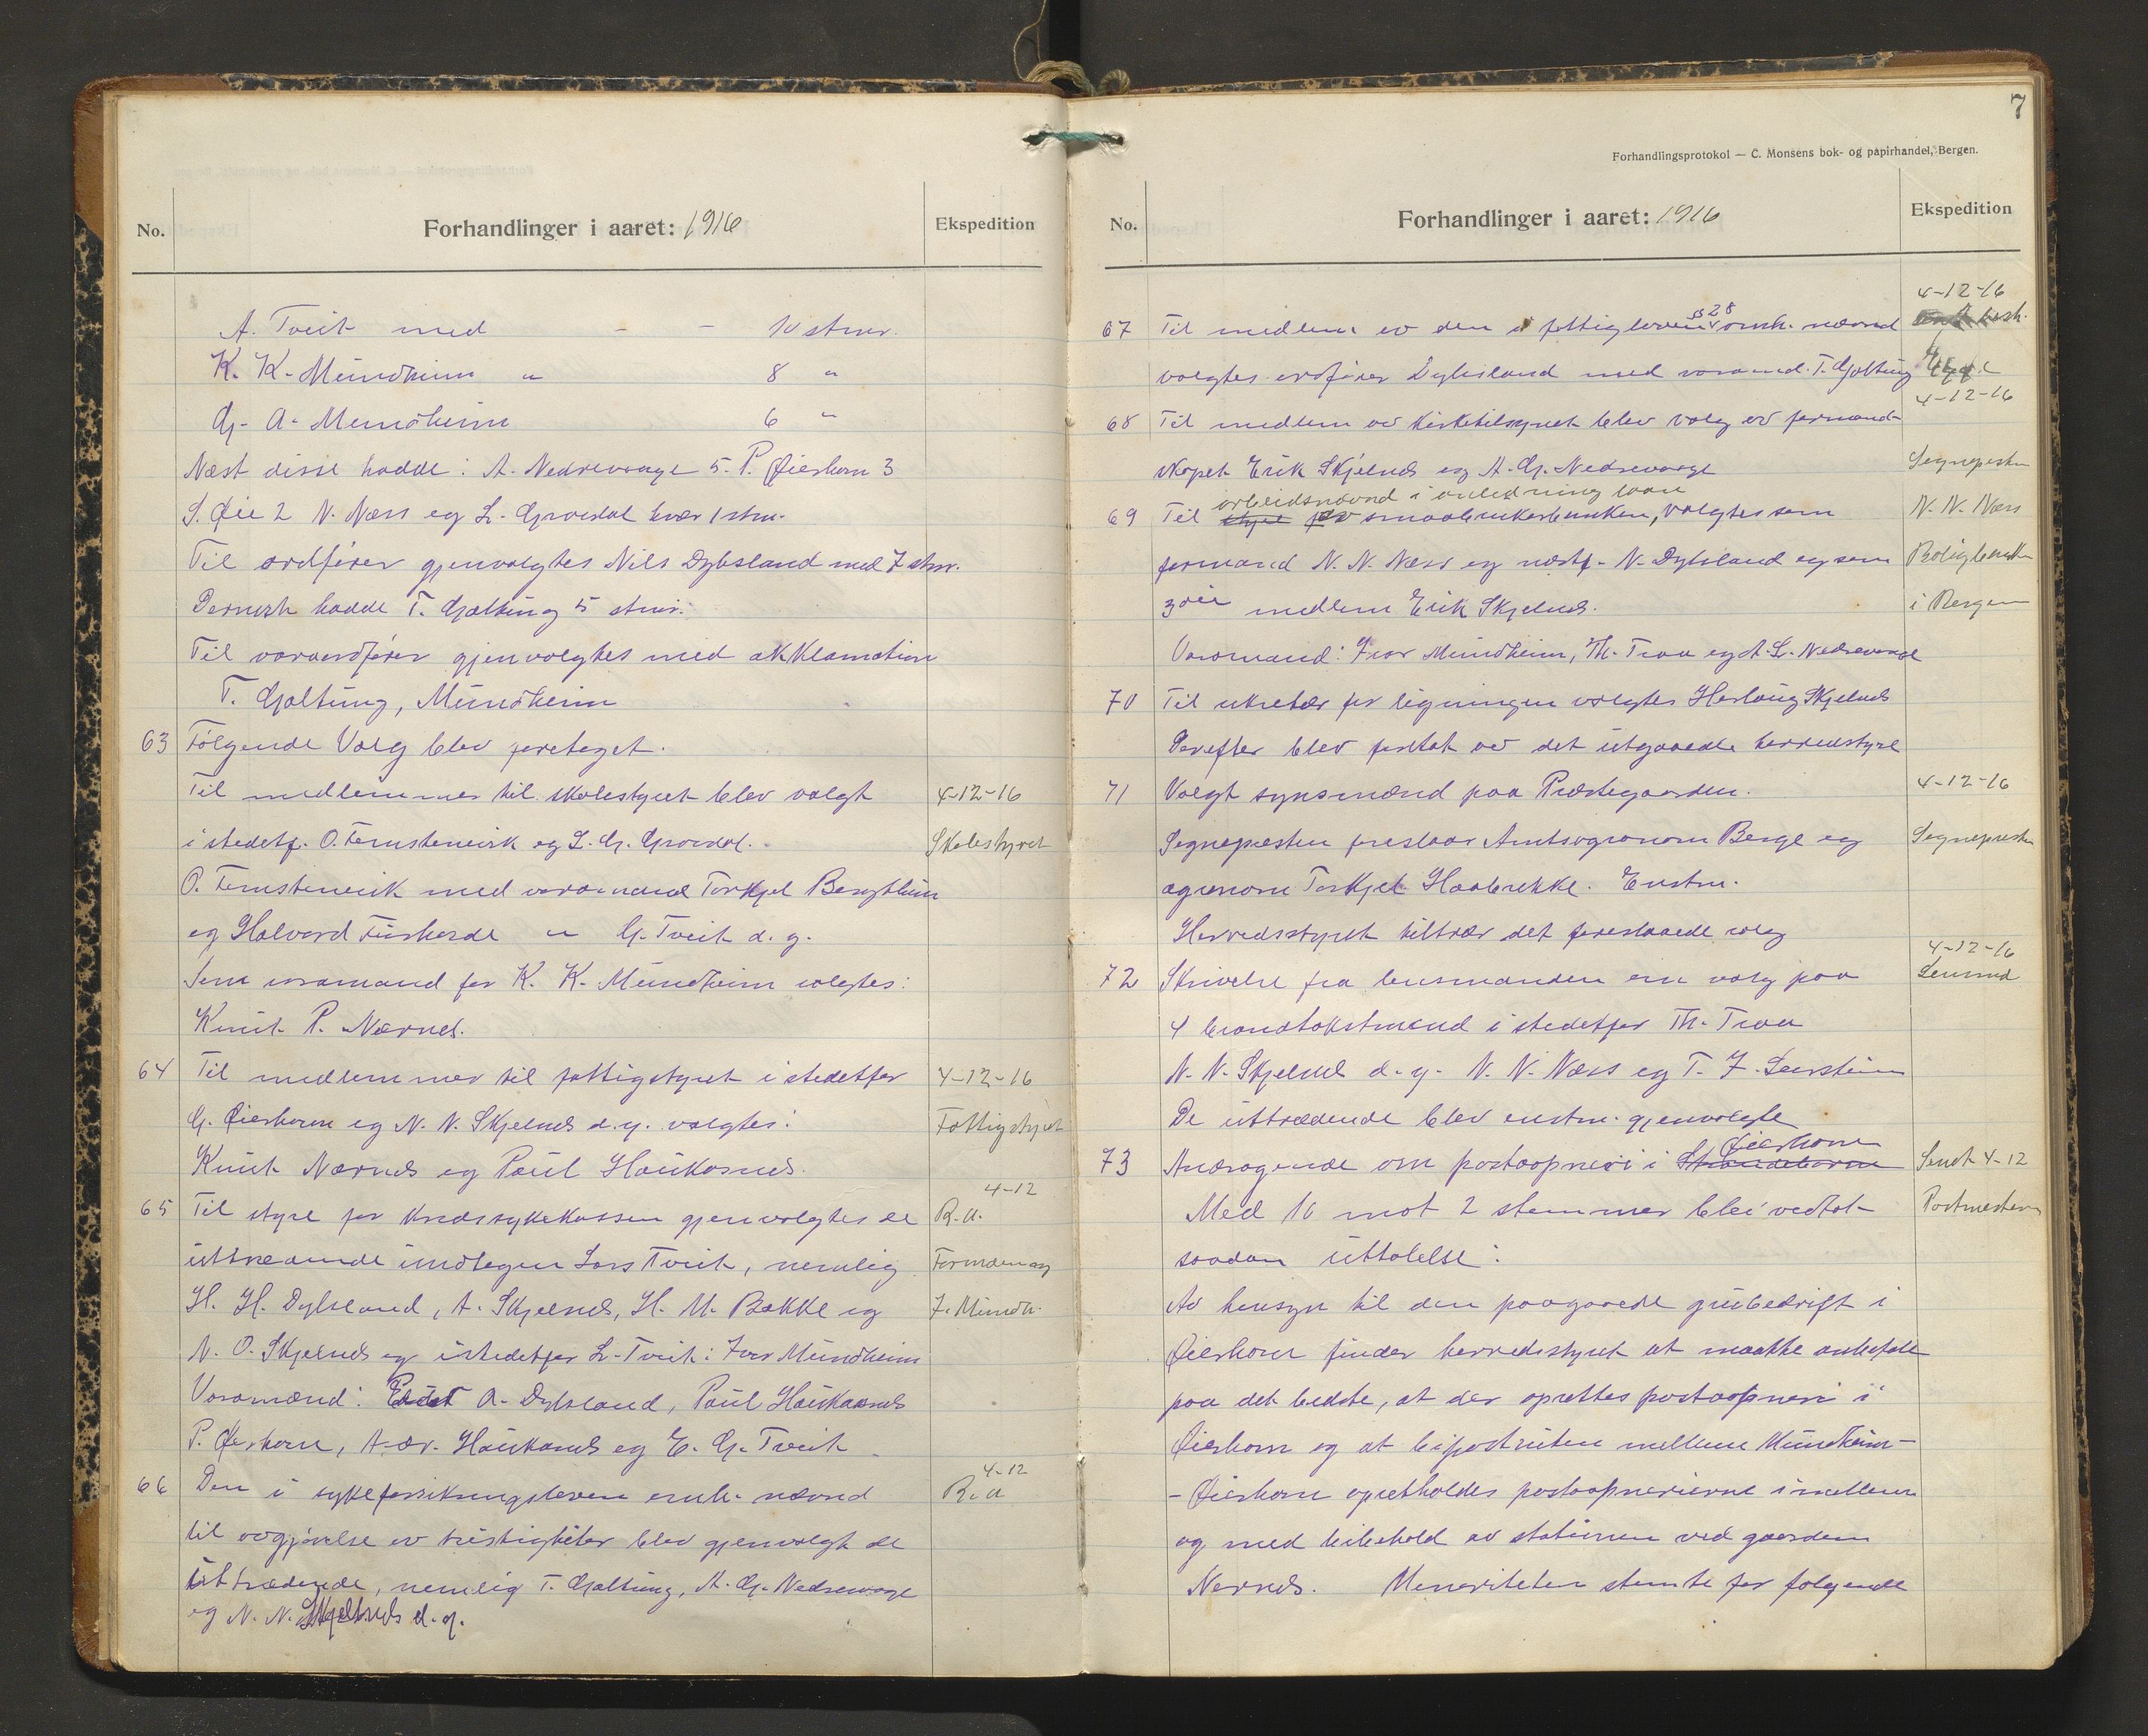 No.
Forhandlinger i aaret: 1916
Ekspedition
A. Tveit med - - 10 stmr.
K. K. Mundheim " 8 "
G. A. Mundheim 6 "
Næst disse hadde: A. Nedrevaage 5. P. Øierhavn 3
S. Øie 2 N. Næss og L. Grovdal hver 1 stm.
Til ordfører gjenvalgtes Nils Dybsland med 7 stmr.
Dernæst hadde T. Galtung 5 stmr.
Til varaordfører gjenvalgtes med akklamation
T. Galtung, Mundheim
63 Følgende Valg blev foretaget.
Til medlemmer til skolestyret blev valgt 4-12-16
i stedetf. O. Ternstenvik og L. G. Grovdal. Skolestyret
O. Ternstenvik med varamand Torkjel Bergthun
og Halvard Fuskerde " G. Tveit d. y.
Som varamand for K. K. Mundheim valgtes:
Knut P. Nærnes.
64 Til medlemmer til fattigstyret istedetfor 4-12-16
G. Øierhavn og N. N. Skjelnes d.y. valgtes: Fattigstyret
Knut Nærnes og Paul Haukasnes.
65 Til styre for kredssykekassen gjenvalgtes de 4-12 R.a.
uttrædende undtagen Lars Tveit, nemlig Formanden og
H. H. Dybsland, A. Skjelnes, H. M. Bakke og I. Mundh.
N. O. Skjelnes og istedetfor L. Tveit: Iver Mundheim
Varamænd: Peder A. Dybsland, Paul Haukaasnes
P. Øierhavn, A. Haukanes og E. G. Tveit
66 Den i sykeforsikringsloven omh. nævnd 4-12 R.a
til avgjørelse av tvistigheter blev gjenvalgt de
uttrædende, nemlig T. Galtung, A. G. Nedrevaage
og N. N. Skjelnes d.y.
7
Forhandlingsprotokol — C. Monsens bok- og papirhandel, Bergen.
No.
Forhandlinger i aaret: 1916
Ekspedition
4-12-16
67 Til medlem av den i fattigloven § 28 omh. nævnd
valgtes ordfører Dybsland med varamd. T. Galtung
4-12-16
68 Til medlem av kirketilsynet blev valg av formand-
skapet Erik Skjelnes og A. G. Nedrevaage Sognepresten
arbeidsnævnd i anledning laan
69 Til styre for av smaabrukerbanken, valgtes som N. N. Næss
formand N. N. Næss og næstf. N. Dybsland og som Boligbanken
3die medlem Erik Skjelnes. i Bergen
Varamænd: Iver Mundheim, Th. Traa og A. L. Nedrevaage
70 Til sekretær for ligningen valgtes Herlaug Skjelnes
Derefter blev foretat av det utgaaende herredstyre
71 Valgt synsmænd paa Prestegaarden. 4-12-16
Sognepresten foreslaar Amtsagronom Berge og Sognepresten
agronom Torkjel Haabrekke. Enstm.
Herredsstyret tiltrær det foreslaaede valg
4-12-16
72 Skrivelse fra lensmanden om valg paa Lensmd
4 brandtakstmænd i stedetfor Th. Traa
N. N. Skjelnes d. y. N. N. Næss og T. J.
De uttrædende blev enstm. gjenvalgte
Øierhavn
73 Andragende om postaapneri i Strandebarm Sendt 4-12
Med 10 mot 2 stemmer blei vedtat Postmesteren
saadan uttalelse:
Av hensyn til den paagaaede grubedrift i
Øierhavn finder herredsstyret at maatte anbefale
paa det bedste, at der oprettes postaapneri i
Øierhavn og at bipostruten mellem Mundheim-
- Øierhavn opretholdes postaapnerierne imellem
og med bibehold av stationen ved gaarden
Nernes. Menoriteten stemte for følgende